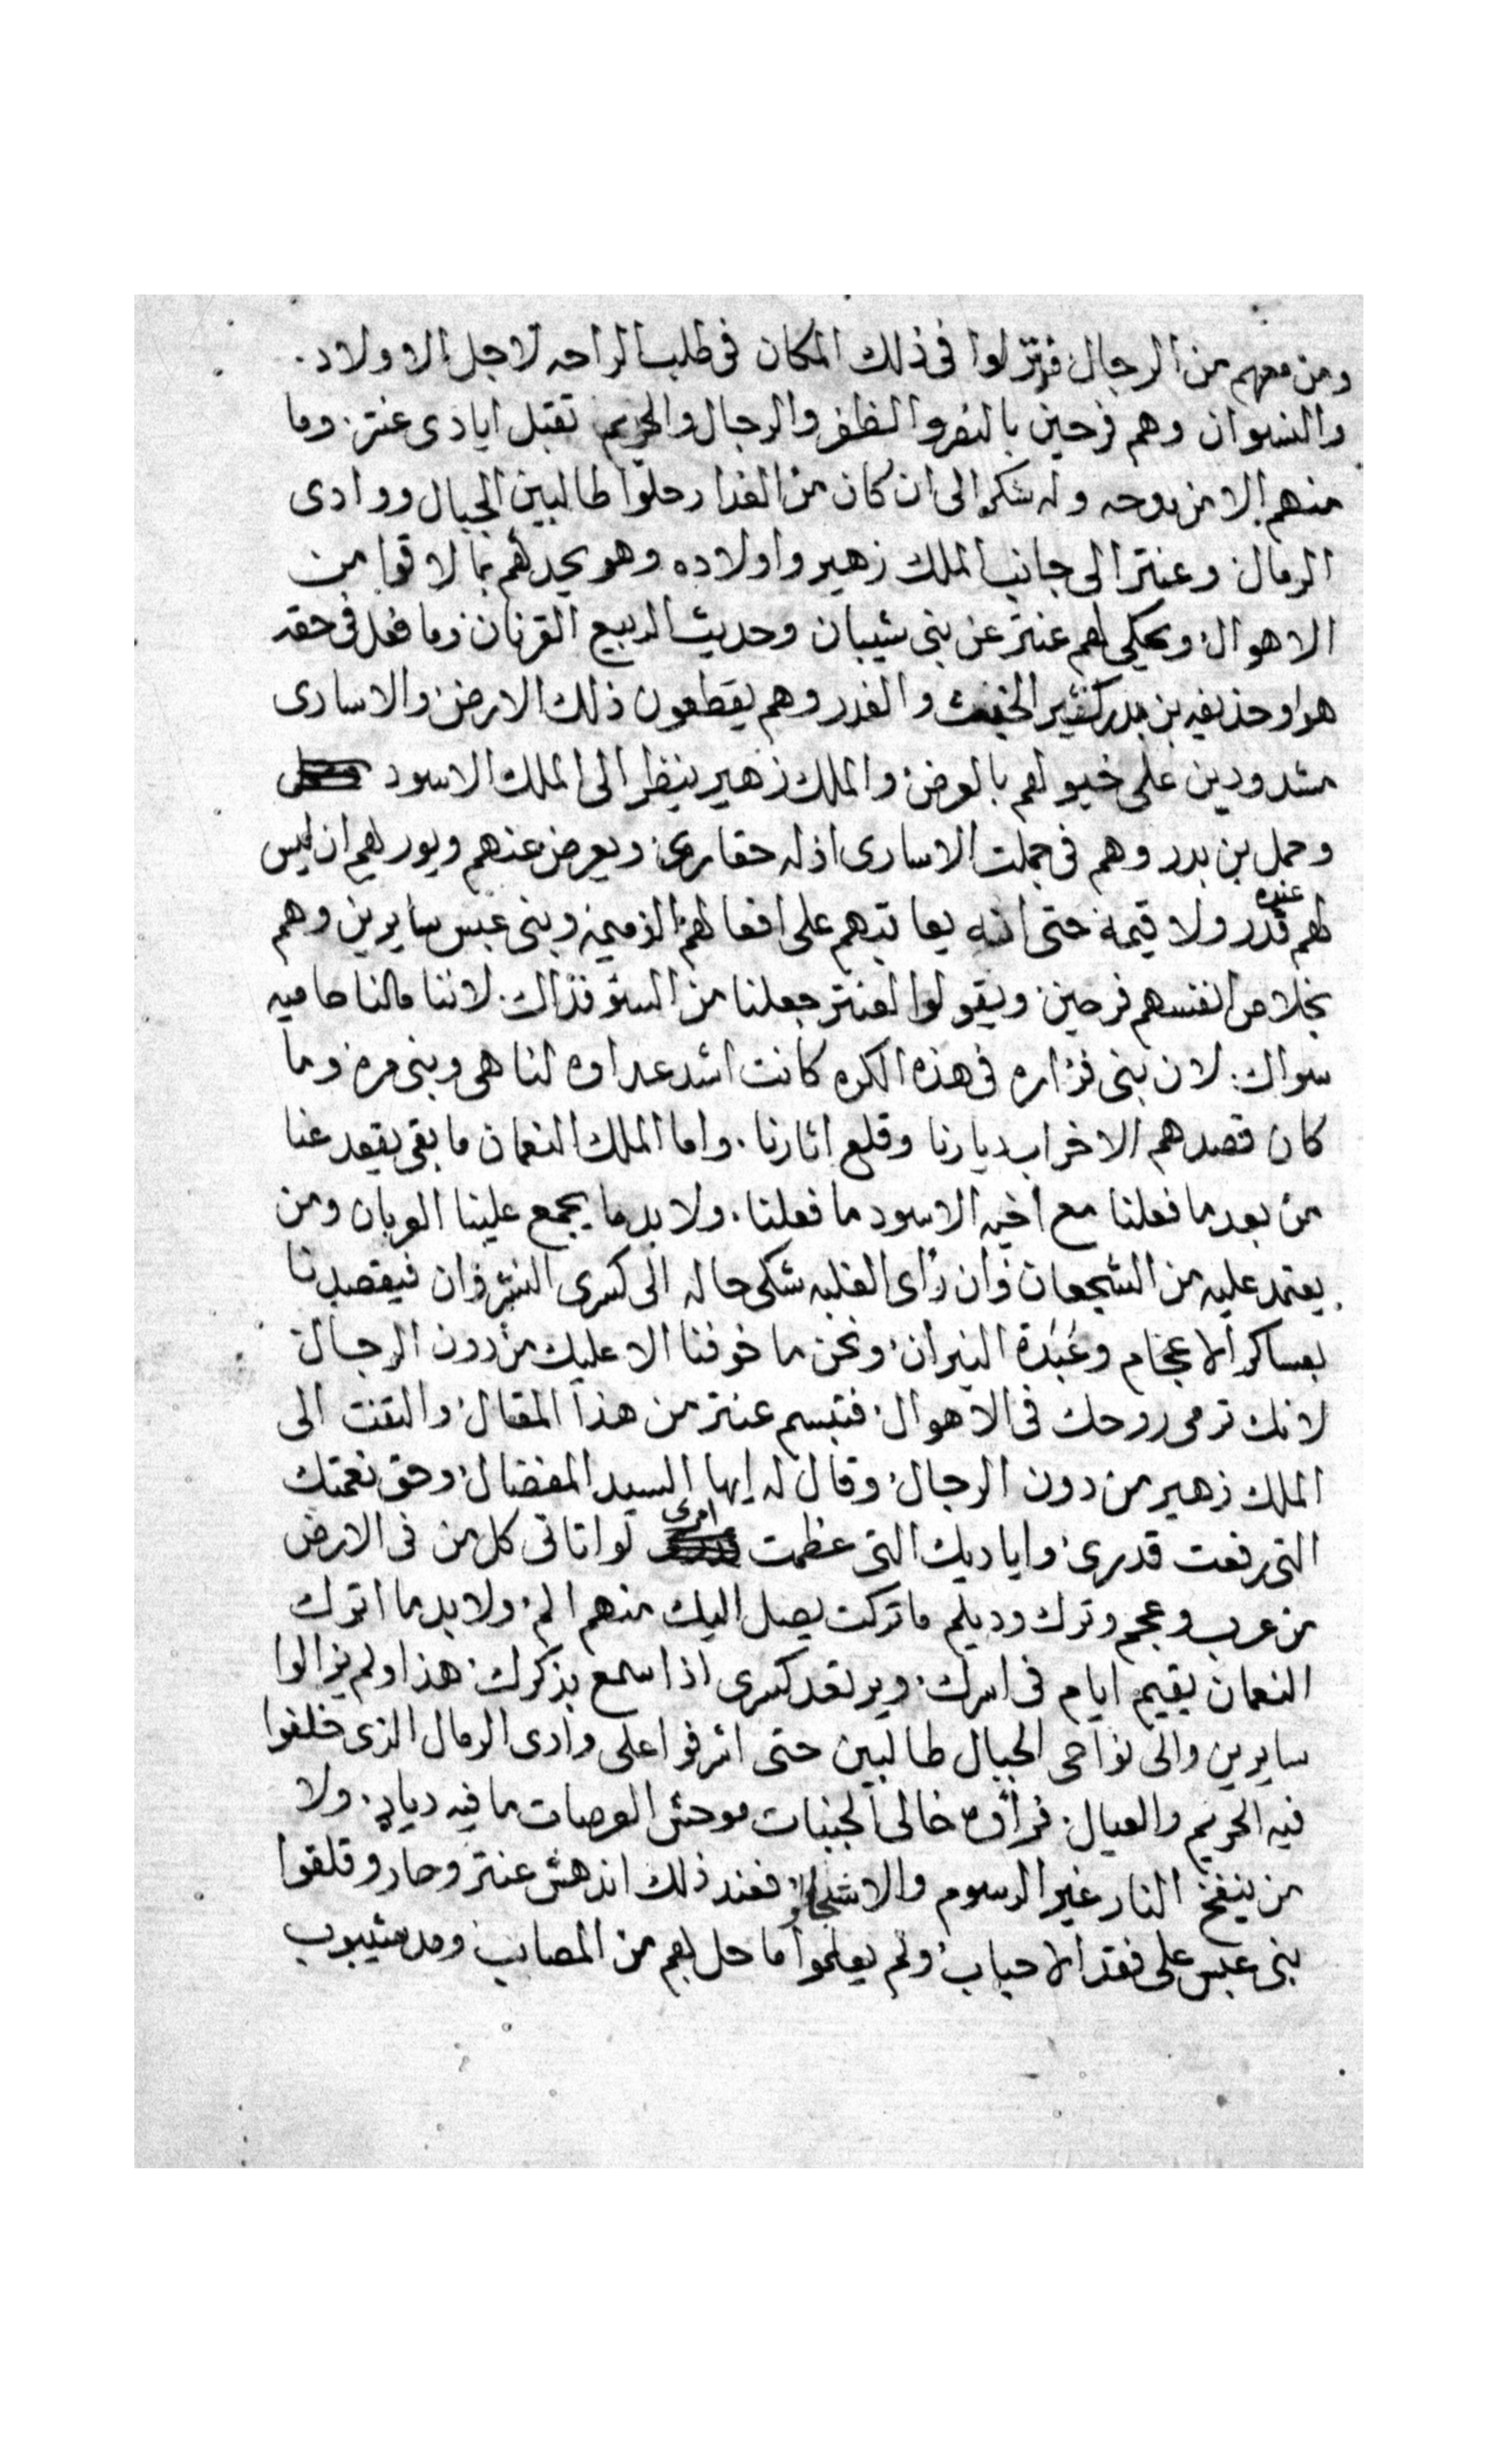 ومن معهم من الرجال فنزلوا فى ذلك المكان فى طلب الراحه لاجل الاولاد.
والنسوان وهم فرحين بالنصر والظفر والرجال والحريم تقبل ايادى عنتر. وما
منهم الا من مدحه وله شكر الى ان كان من الغدا رحلوا طالبين الجبال ووادى
الرمال وعنتر الى جانب الملك زهير واولاده وهو يحدثهم بما لاقوا من
الاهوال ويحكي لهم عنتر عن بنى شيبان وحديث الربيع القرنان وما فعل فى حقه
هوا وحذيفه بن بدر كثير الخبث والغدر وهم يقطعون ذلك الارض والاسارى
مشدودين على خيولهم بالعرض والملك زهير ينظر الى الملك الاسود
وحمل بن بدر وهم فى جملت الاسارى اذله حقارى ويعرض عنهم ويوريهم ان ليس
لهم عنده قدر ولا قيمة حتى انه يعاتبهم على افعالهم الذميمه وبنى عبس سايرين وهم
بخلاص انفسهم فرحين ويقولوا لعنتر جعلنا من السؤ فداك. لاننا مالنا حاميه
سواك. لان بنى فزاره فى هذه الكره كانت اشد عداوه لنا هى وبنى مره وما
كان قصدهم الا خراب ديارنا وقلع اثارنا. واما الملك النعمان ما بقى يقعد عنا
من بعد ما فعلنا مع اخيه الاسود ما فعلنا. ولا بد ما يجمع علينا العربان ومن
يعتمد عليه من الشجعان وان رأى الغلبه شكى حاله الى كسرى انشروان فيقصدنا
بعساكر الاعجام وعبدة النيران ونحن ما خوفنا الا عليك من دون الرجال
لانك ترمى روحك فى الاهوال فتبسم عنتر من هذا المقال والتفت الى
الملك زهير من دون الرجال وقال له ايها السيد المفضال وحق نعمتك
التى رفعت قدرى واياديك التى عظمت امرى لو اتانى كل من فى الارض
من عرب وعجم وترك وديلم ما تركت يصل اليك منهم الم ولا بد ما اترك
النعمان يقيم ايام فى اسرك. ويرتعد كسرى اذا سمع بذكرك. هذا ولم يزالوا
سايرين والى نواحى الجبال طالبين حتى اشرفوا على وادى الرمال الذى خلفوا
فيه الحريم والعيال. فرأوه خالى الجنبات موحش العرصات ما فيه ديار. ولا
من ينفخ النار غير الرسوم والاشجار فعند ذلك اندهش عنتر وحار وقلقوا
بنى عبس على فقد الاحباب ولم يعلموا ما حل بهم من المصايب ومد شيبوب